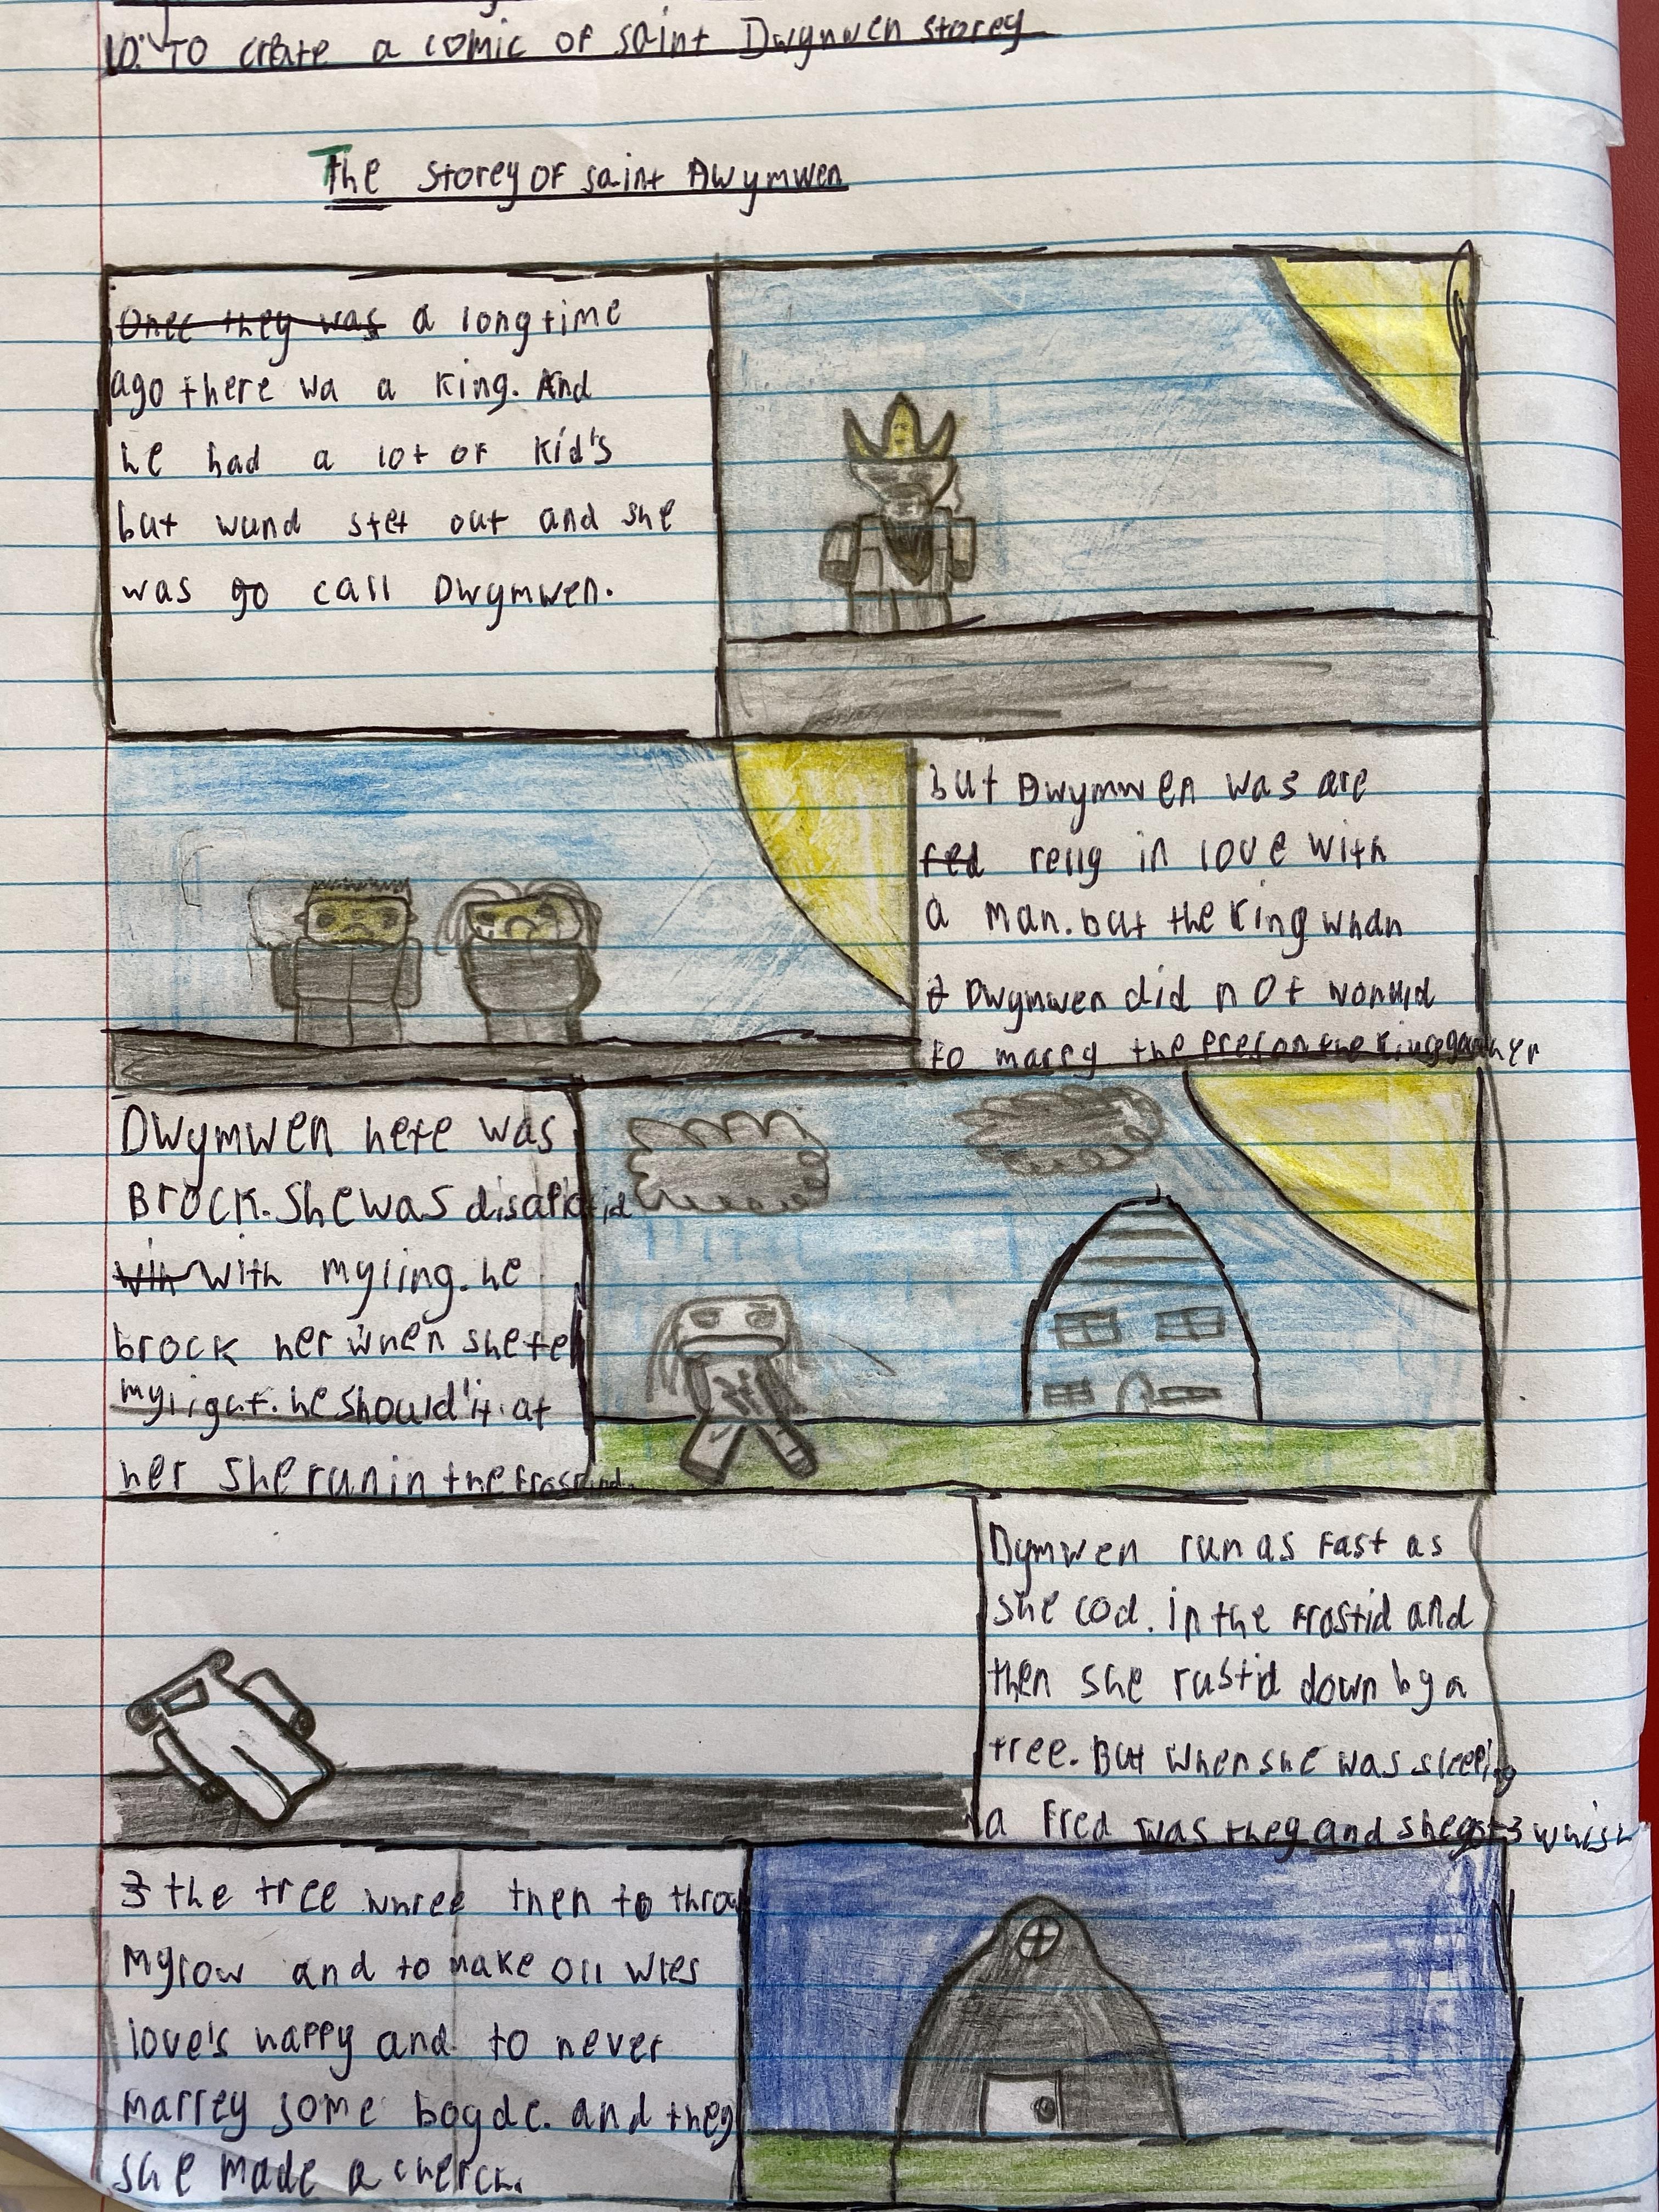 LO: To create a comic of saint Dwynwen storey
The storey of saint Dwymwen
Once they was a long time
ago there wa a king. And
he had a lot of kid's
but wund stet out and she
was go call Dwymwen.
but Dwymwen was are
red relly in love with
a man. but the king whan
Dwymwen did not
to marry the preson the king
Dwymwen hete was
Brock. She was
win with myling. he
brock her when she tel
myligat. he should'it at
her she run in the
Dymwen run as fast as
she cod. in the frostid and
then she rustid down by a
tree. But when she was sleeping
a fred was they and she got 3 whish
3 the tree whree then to throw
Mylow and to make oll wies
love's happy and to never
marrey some bogde. and they
she made a cherch.